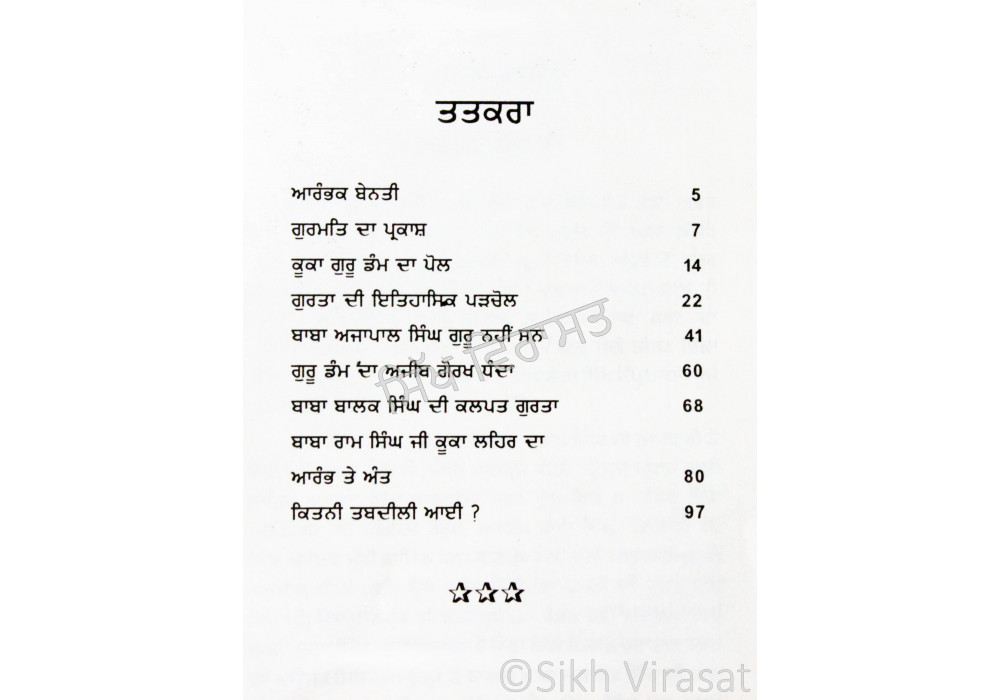 ਤਤਕਰਾ
ਆਰੰਭਕ ਬੇਨਤੀ 5
ਗੁਰਮਤਿ ਦਾ ਪ੍ਰਕਾਸ਼ 7
ਕੂਕਾ ਗੁਰੂ ਡੰਮ ਦਾ ਪੋਲ 14
ਗੁਰਤਾ ਦੀ ਇਤਿਹਾਸਿਕ ਪੜਚੋਲ 22
ਬਾਬਾ ਅਜਾਪਾਲ ਸਿੰਘ ਗੁਰੂ ਨਹੀਂ ਸਨ 41
ਗੁਰੂ ਡੰਮ ਦਾ ਅਜੀਬ ਗੋਰਖ ਧੰਦਾ 60
ਬਾਬਾ ਬਾਲਕ ਸਿੰਘ ਦੀ ਕਲਪਤ ਗੁਰਤਾ 68
ਬਾਬਾ ਰਾਮ ਸਿੰਘ ਜੀ ਕੂਕਾ ਲਹਿਰ ਦਾ
ਆਰੰਭ ਤੇ ਅੰਤ 80
ਕਿਤਨੀ ਤਬਦੀਲੀ ਆਈ ? 97
ਸਿੱਖ ਵਿਰਾਸਤ
©Sikh Virasat